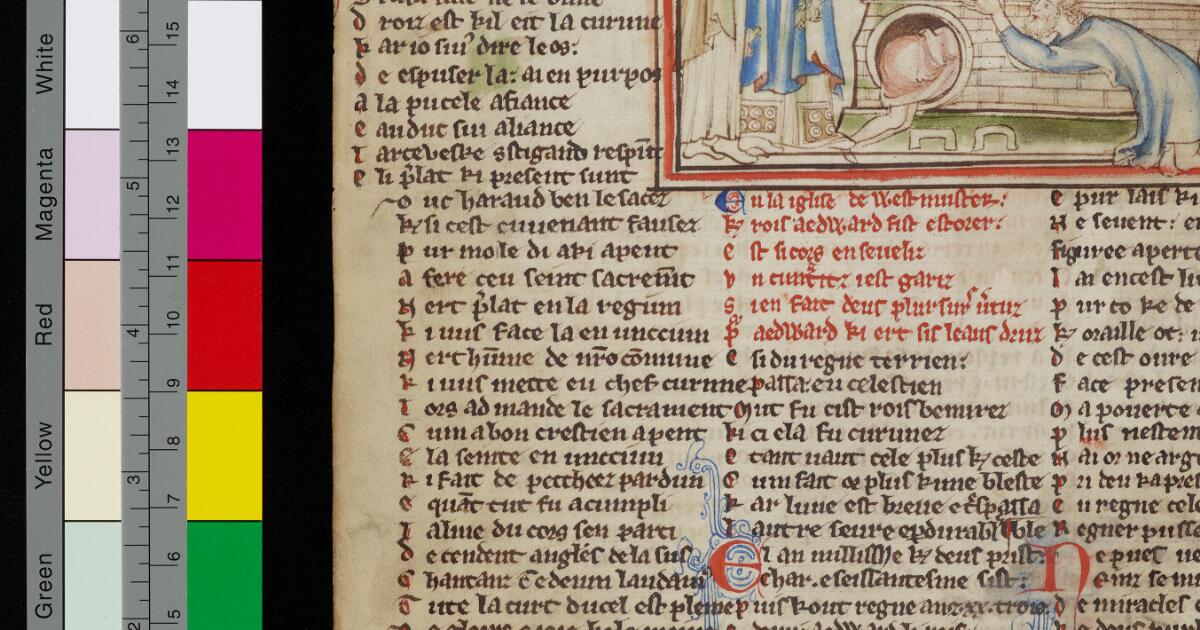 White
Magenta
Red
Yellow
Green
6
5
4
3
2
15
14
13
12
11
10
9
8
7
6
5
d roiz est kil eit la curune
k ar io sui dire le os:
d e espuser la: ai en purpos
a la pucele afiance
e au duc sui aliance
l arceveske stigand respunt
e li p̄lat ki present sunt
o uc haraud ben le sacez
k si cest cuvenant fausez
p ur mole di abi apent
a fere ceu seint sacrem̄t
N ert p̄lat en la regiun
k i vus face la en unccium
N ert hūme de nr̄o cōmune
k i vus mette eu chef curune
l ors ad mande le sacrament
C um a bon crestien apent
E la seinte en unccium
k i fait de pecchez pardun
e quāt cut fu acumpli
l alme du cors sen parti
d ecendent angles de la sus
C hantanz te deum laudamus
T ute la curt du cel est pleine
E n la iglise de Westmuster:
k rois aedward fist estorer:
e st si cors enseveliz
v n cuntrez i est gariz
s ien fait deus plursurs vertuz
p aedward ki ert sis leaus druz
e si du regne terrien:
passa: eu celestien
Mut fu cist rois bemirez
ki ci e la fu curunez
e tant vaut cele plus k ceste
C um fait or plus kune bleste
k ar lune est breve e trespassa
l autre seure e pdurable
E l an millisme k deus prist:
char. e seissantesme sist:
p uis kout regne anz. xx. trois
e pur lais
N e sevent:
figuree aperte
l ai encest li
p ur co ke de
k oraille ot:
d e cest ovre
f ace presen
M a poverte
p lus nestem
n ai or ne arge
e n regne cel
R egner puiss
N e pues
d e miracles